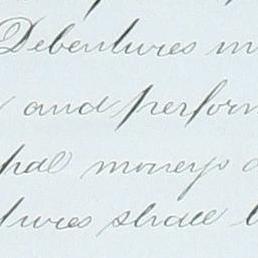 Debentures
and perform
pal moneys
tures shall